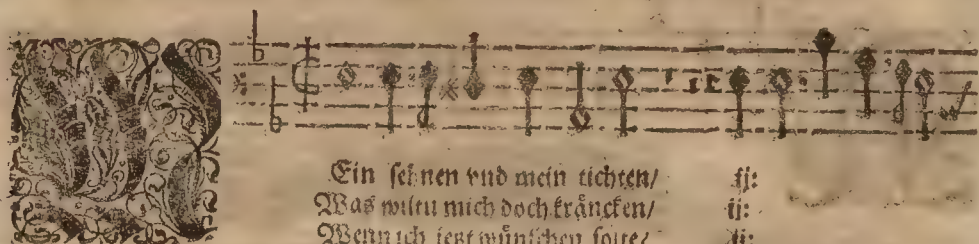 Ein sehnen vnd mein tichten/ ij:
Was wiltu mich doch kråncken/ ij:
Wenn ich jetzt wůnschen solte/ ij: